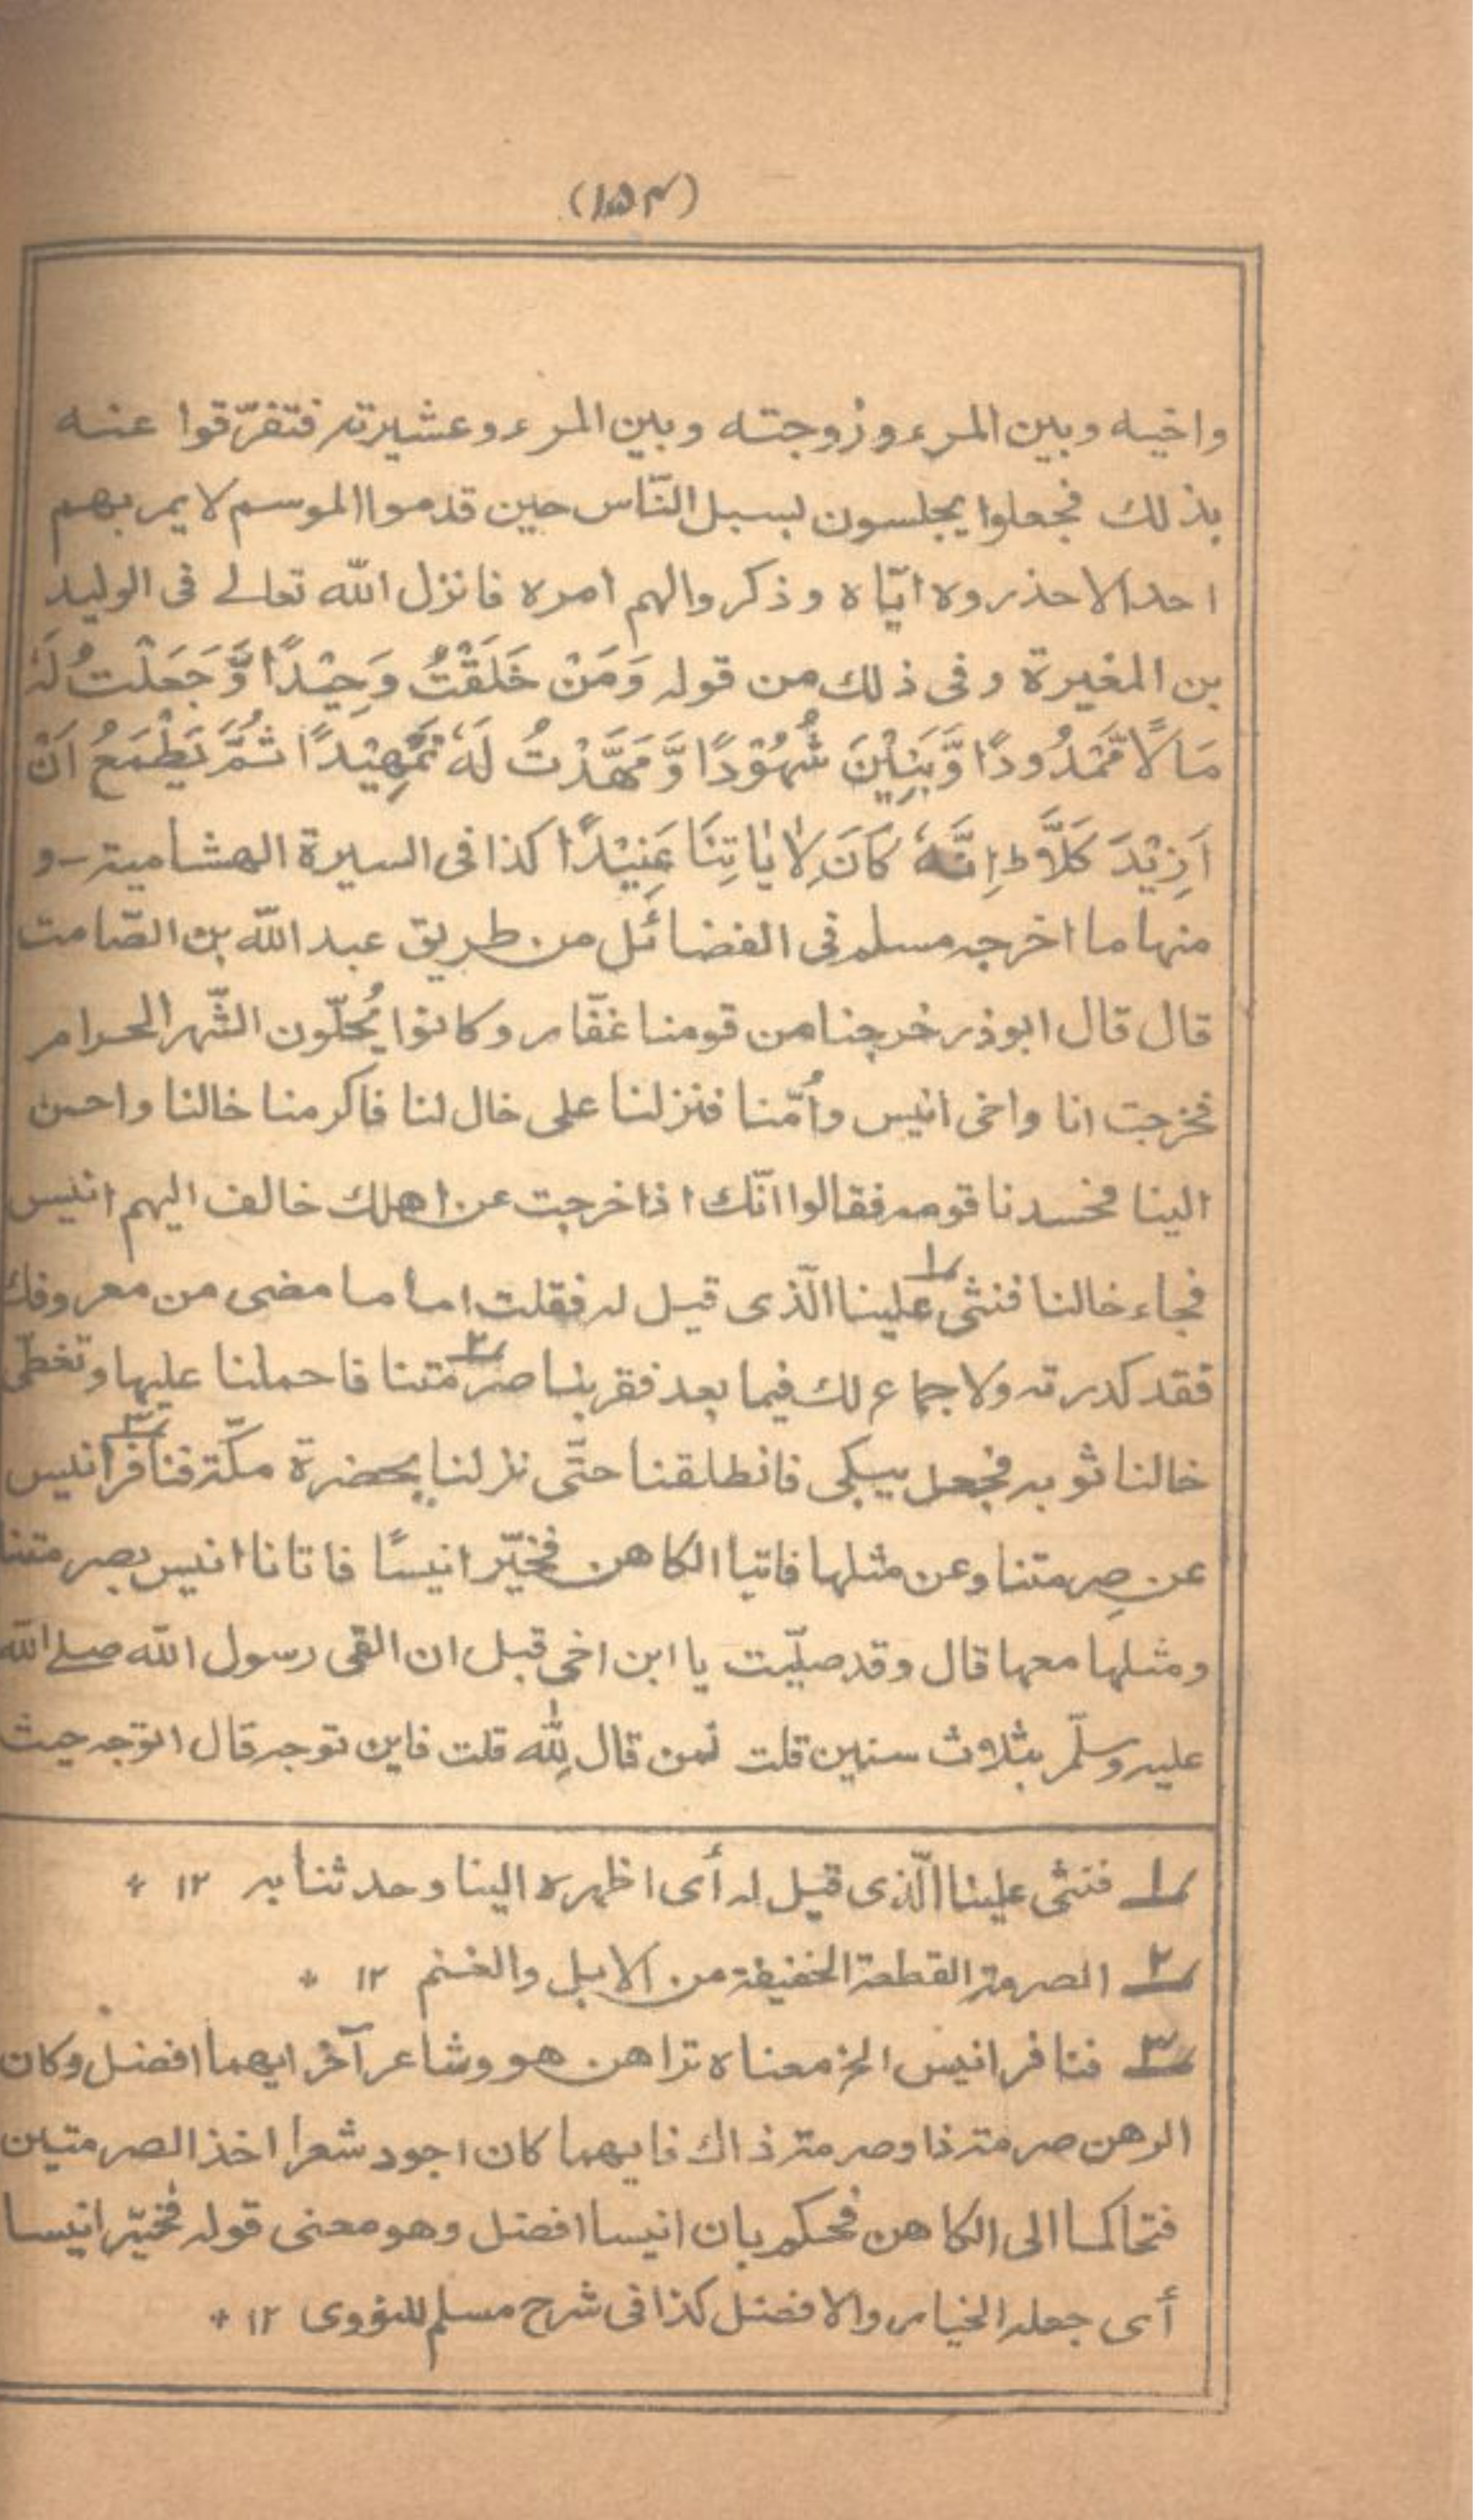 (۱۵۴)
واخيه وبين المرء وزوجته وبين المرء وعشيرته فتفرّقوا عنه
بذلك فجعلوا يجلسون لسبل النّاس حين قدموا الموسم لا يمر بهم
احد الا حذروه ايّاه وذكروا لهم امره فانزل الله تعالے فى الوليد
بن المغيرة وفى ذلك من قوله وَمَنْ خَلَقْتُ وَحِيْدًا وَّجَعَلْتُ لَهٗ
مَالًا مَّمْدُودًا وَّبَنِيْنَ شُهُوْدًا وَّمَهَّدْتُ لَهٗ تَمْهِيْدًا ثُمَّ يَطْمَعُ اَنْ
اَزِيْدَ كَلَّا ط اِنَّهٗ كَانَ لِاٰيَاتِنَا عَنِيْدًا كذا فى السيرة الهشامية - و
منها ما اخرجه مسلم فى الفضائل من طريق عبد الله بن الصّامت
قال قال ابوذر خرجنا من قومنا غفّار وكانوا يُحلّون الشّهر الحرام
فخرجت انا واخى انيس واُمّنا فنزلنا على خال لنا فاكرمنا خالنا واحسن
الينا فحسدنا قومه فقالوا انّك اذا خرجت عن اهلك خالف اليهم انيس
فجاء خالنا فنثى ؂۱ علينا الّذى قيل له فقلت اما ما مضى من معروفك
فقد كدرته ولا جماع لك فيما بعد فقربنا صرمتنا ؂۲ فاحملنا عليها وتغطّى
خالنا ثوبه فجعل يبكى فانطلقنا حتّى نزلنا بحضرة مكّة فنافر ؂۳ انيس
عن صِرمتنا وعن مثلها فاتيا الكاهن فخيّر انيسًا فاتانا انيس بصرمتنا
ومثلها معها قال وقد صلّيت يا ابن اخى قبل ان القى رسول الله صلے الله
عليه وسلّم بثلاث سنين قلت لمن قال لِلّٰه قلت فاين توجه قال اتوجه حيث
؂۱ فنثى علينا الّذى قيل له أى اظهره الينا وحدثنا به ۱۲ *
؂۲ الصرمة القطعة الخفيفة من الابل والغنم ۱۲ *
؂۳ فنافر انيس الخ معناه تراهن هو وشاعر آخر ايهما افضل وكان
الرهن صرمة ذا وصرمة ذاك فايهما كان اجود شعرا اخذ الصرمتين
فتحاكما الى الكاهن فحكم بان انيسا افضل وهو معنى قوله فخيّر انيسا
أى جعله الخيار والافضل كذا فى شرح مسلم للنووى ۱۲ *